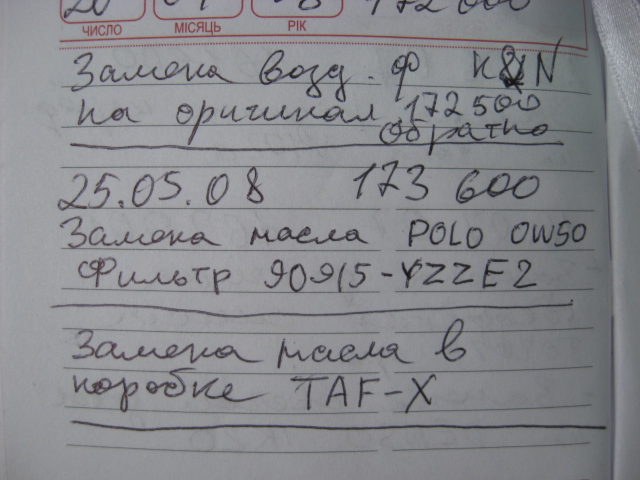 20 04 08 172 000
ЧИСЛО МІСЯЦЬ РІК
Замена возд. ф K&N
на оригинал 172500
обратно
25.05.08 173 600
Замена масла POLO 0W50
Фильтр 90915-YZZE2
Замена масла в
коробке TAF-X